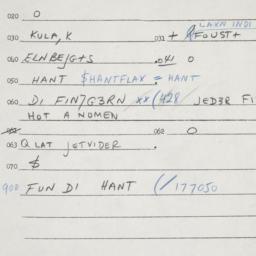 020 0
LAXN INDI
030 KULA, K 031 + FOUST+
040 ELNBEJG+S .041 0
050 HANT $HANTFLAX = HANT
060 DI FIN7G3RN xx(428 JED3R FI
HOT A NOMEN
062 0
063 Q LAT JETVIDER .
070 $
900 FUN DI HANT (/177050